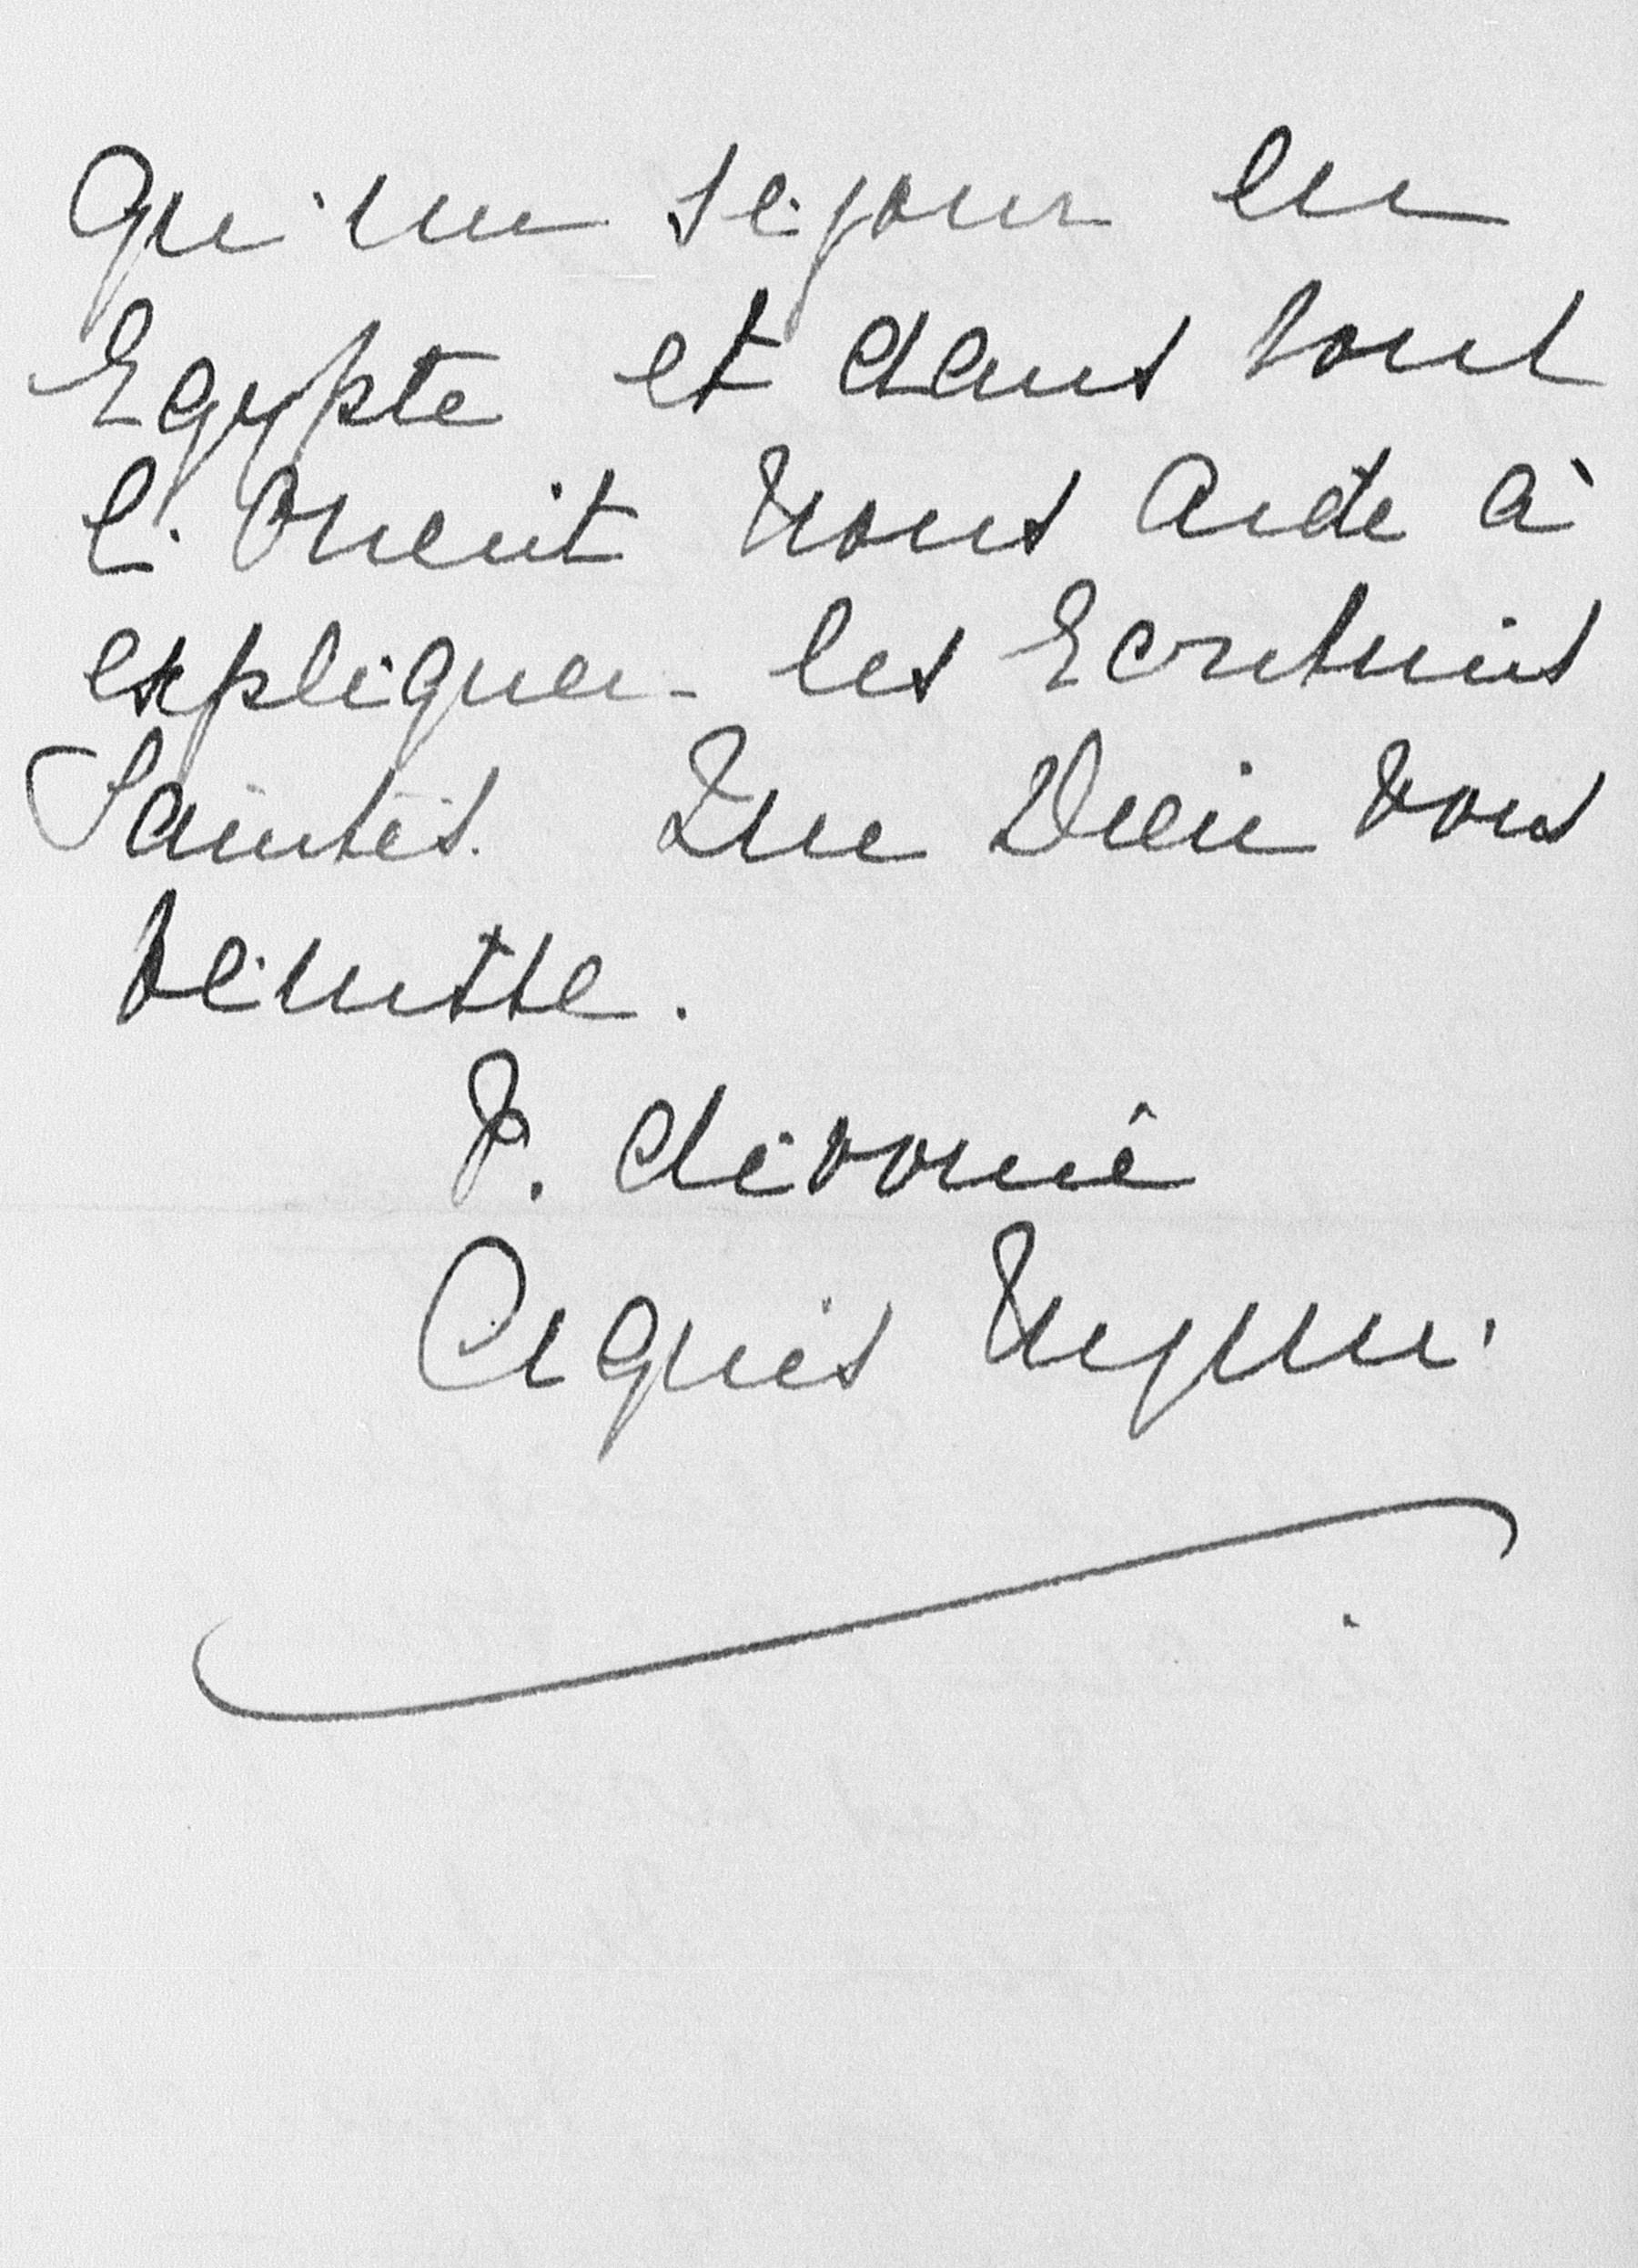 qu'un séjour en
Egypte et dans tout
l'Orient nous aide à
expliquer les Ecritures
Saintes. Que Dieu vous
bénisse.
V. dévoué